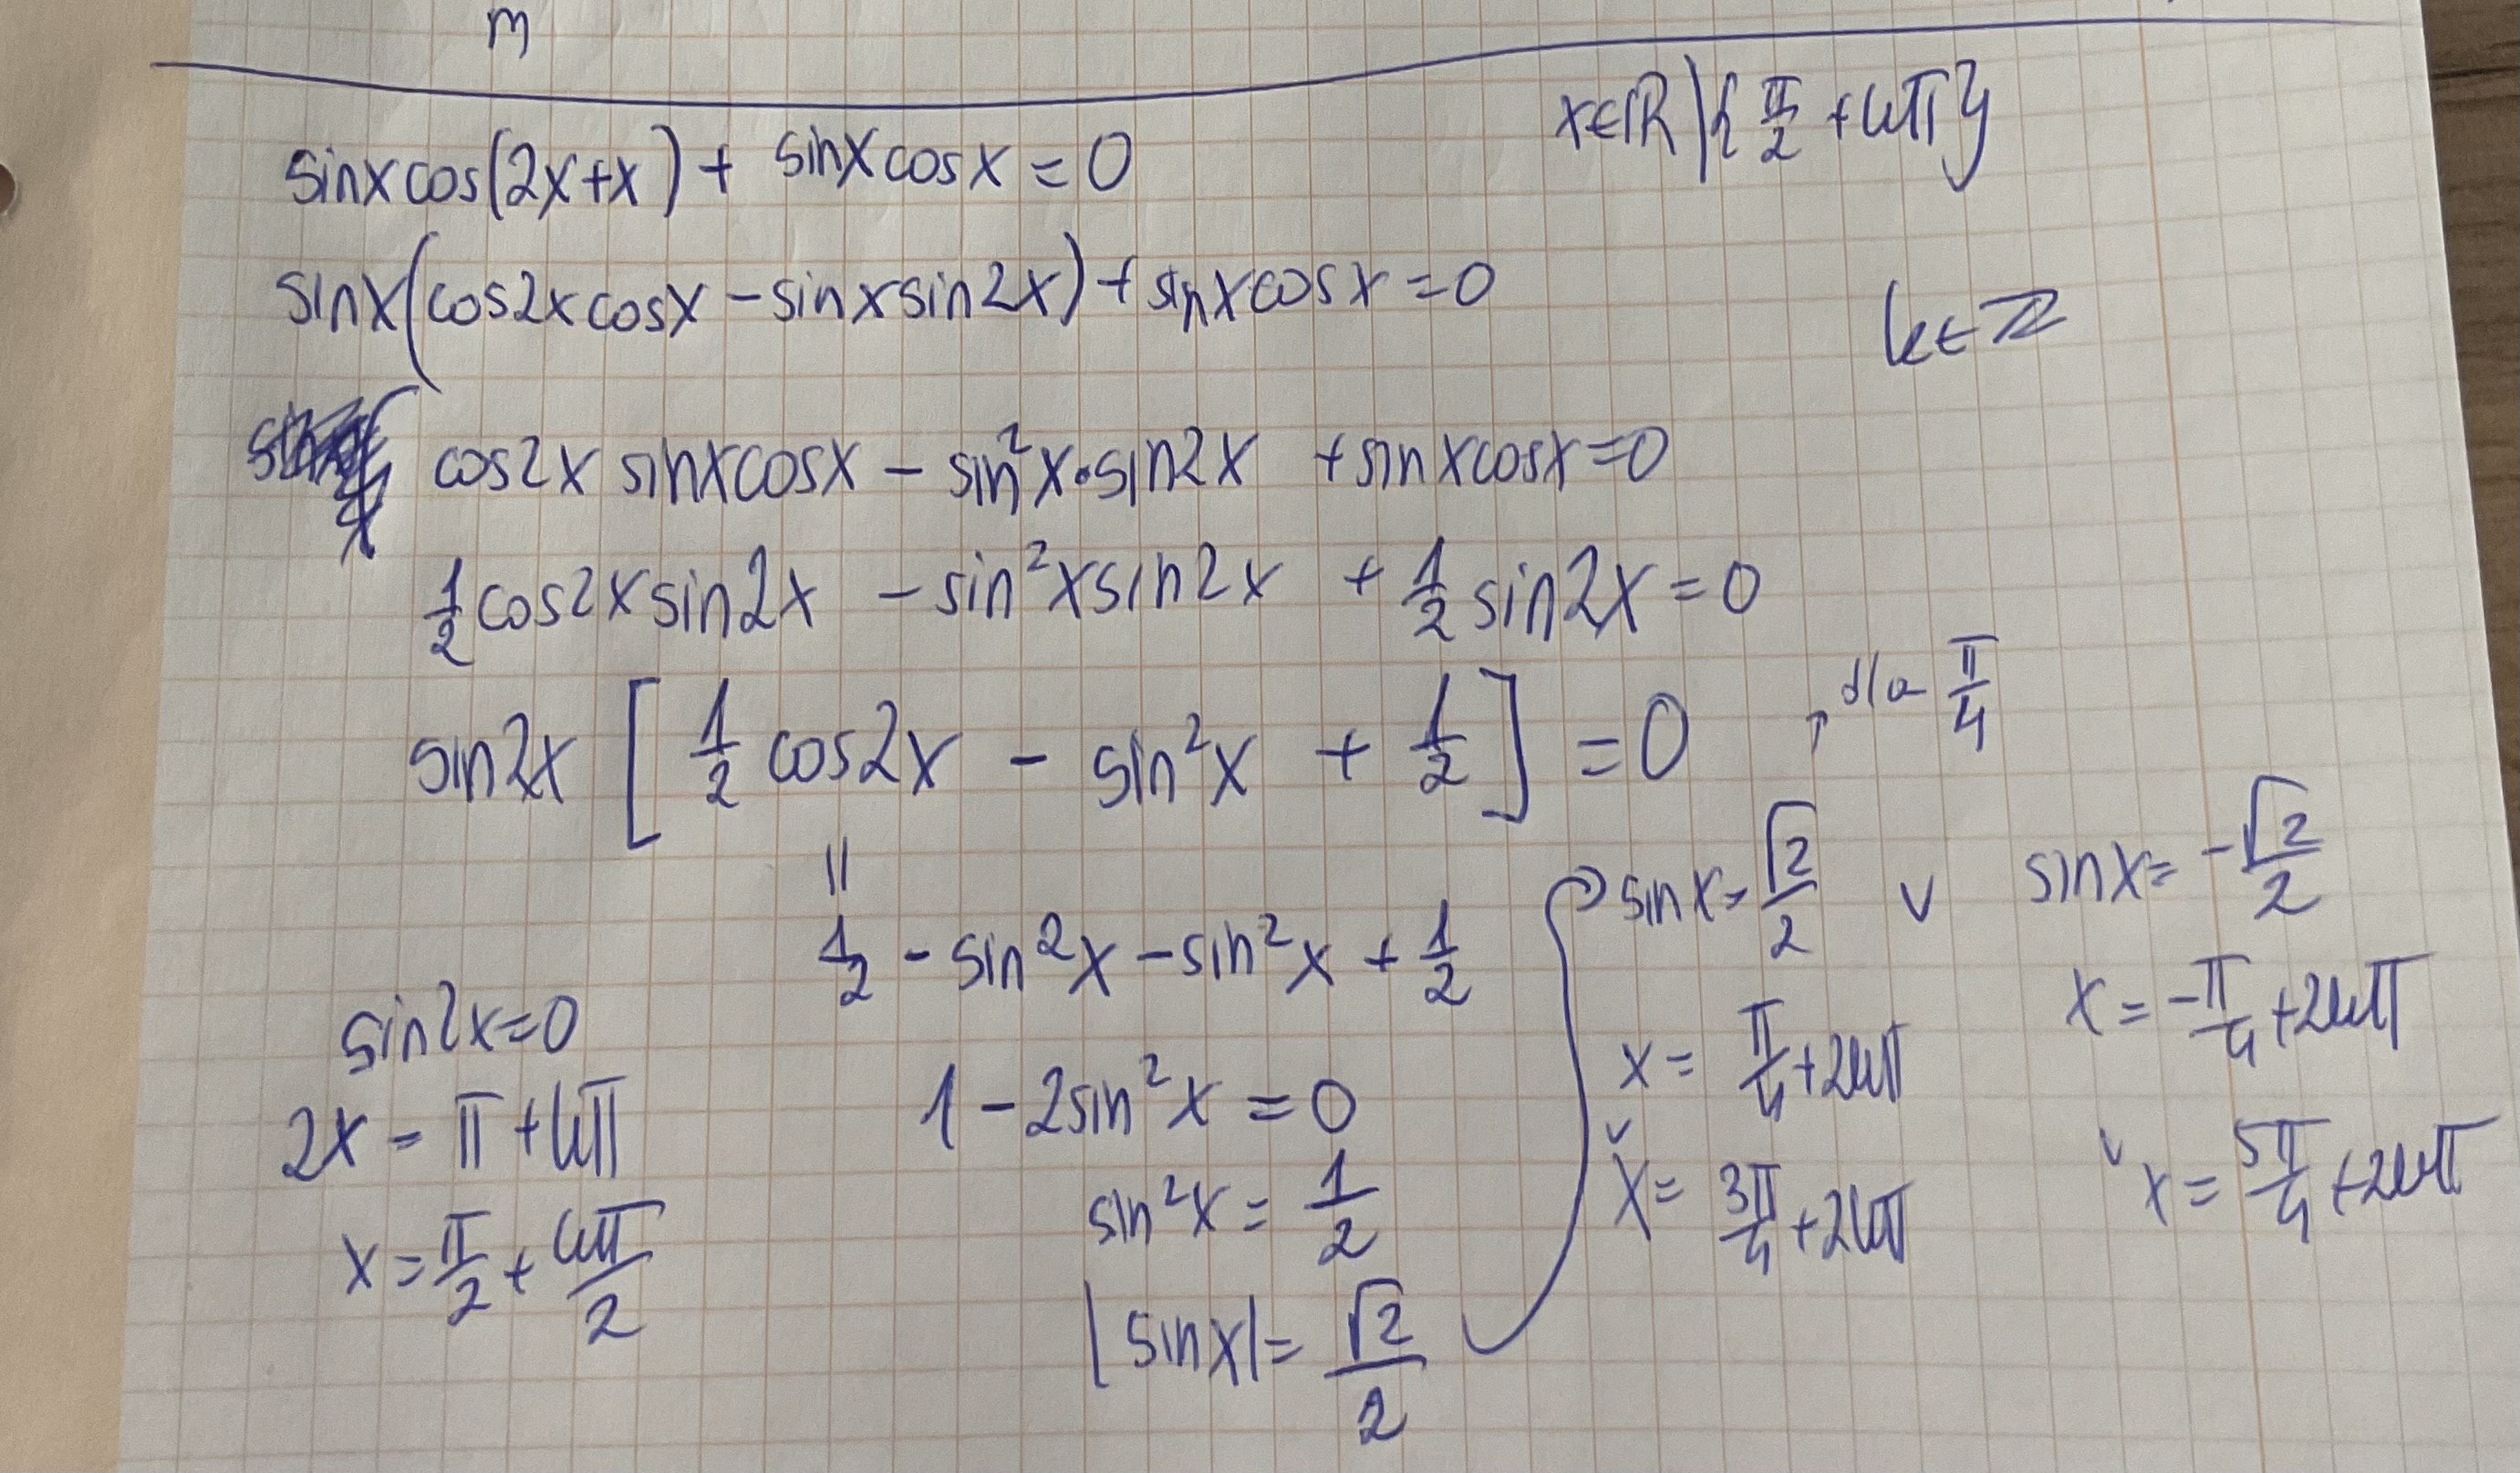 m
x∈ℝ\{π/2 + kπ}
sinx cos(2x+x) + sinx cosx = 0
sinx(cos2x cosx - sinx sin2x) + sinx cosx = 0
k∈ℤ
cos2x sinx cosx - sin²x·sin2x + sinx cosx = 0
1/2 cos2x sin2x - sin²x sin2x + 1/2 sin2x = 0
sin2x [1/2 cos2x - sin²x + 1/2] = 0
, dla π/4
||
1/2 - sin²x - sin²x + 1/2
sin2x = 0
2x = π + kπ
x = π/2 + kπ/2
1 - 2sin²x = 0
sin²x = 1/2
|sinx| = √2/2
sinx = √2/2 ∨ sinx = -√2/2
x = π/4 + 2kπ
∨
x = 3π/4 + 2kπ
x = -π/4 + 2kπ
∨ x = 5π/4 + 2kπ